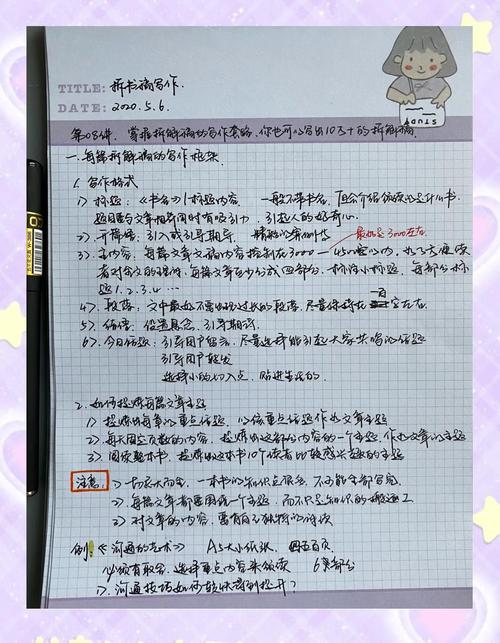 TITLE: 拆书稿写作.
DATE: 2020.5.6.
STUDY
第08件. 掌握拆解稿的写作套路,你也可以写出10万+的拆解稿
一.每篇拆解稿的写作框架
1. 写作格式
1) 标题:《书名》|标题内容. 一般不带书名,
题目要与文章相关同时有吸引力,引起人的好奇心.
2) 开篇语:引入或引导期待.
最好是3000左右
3) 主内容:每篇文章文稿内容控制在3000—4500字以内,
者对全文的理解,每篇文章至少分成四部分,标清小标题,每部分标
题1.2.3.4...
4) 段落:文中最好不要出现过长的段落,尽量保持在一百字左右
5) 结语:设置悬念,引导期待.
6) 今日话题:引导用户留言,尽量选择能引起大家共鸣的话题
引导用户转发
选择小的切入点,贴近生活的.
2. 如何提炼每篇文章主题
1) 提炼出每章的重点话题,以该重点话题作为文章主题
2) 每天固定页数的内容,提炼出这部分内容的一个主题,作为文章的主题
3) 阅读整本书,提炼出这本书10个读者比较感兴趣的主题
注意: 1) 切忌大而全,一本书的知识点很多,不可能全部写完
2) 每篇文章都要围绕一个主题,而不只是知识的搬运工
3) 对文章的内容,要有自己独特的解读
例! 《沟通的艺术》 A5大小纸张, 四五百页,
必须有取舍,选择重点内容来领读 6篇部分
1) 沟通技巧如何较快得到提升?